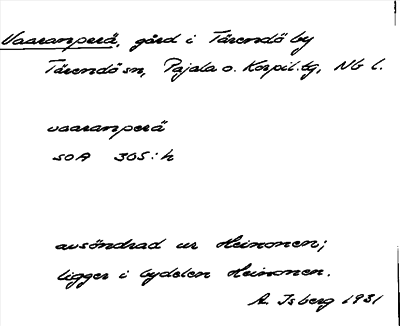 Vaaranperä, gård i Tärendö by
Tärendö sn, Pajala o. Korpil. tg, Nb l.
vaaranperä
SOA 305:h
avsöndrad ur Heinonen;
ligger i bydelen Heinonen.
A. Isberg 1931